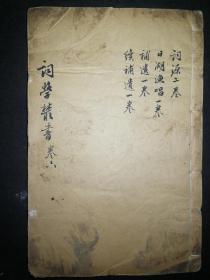 詞源二卷
日湖漁唱一卷
補遺一卷
續補遺一卷
词學叢書卷六